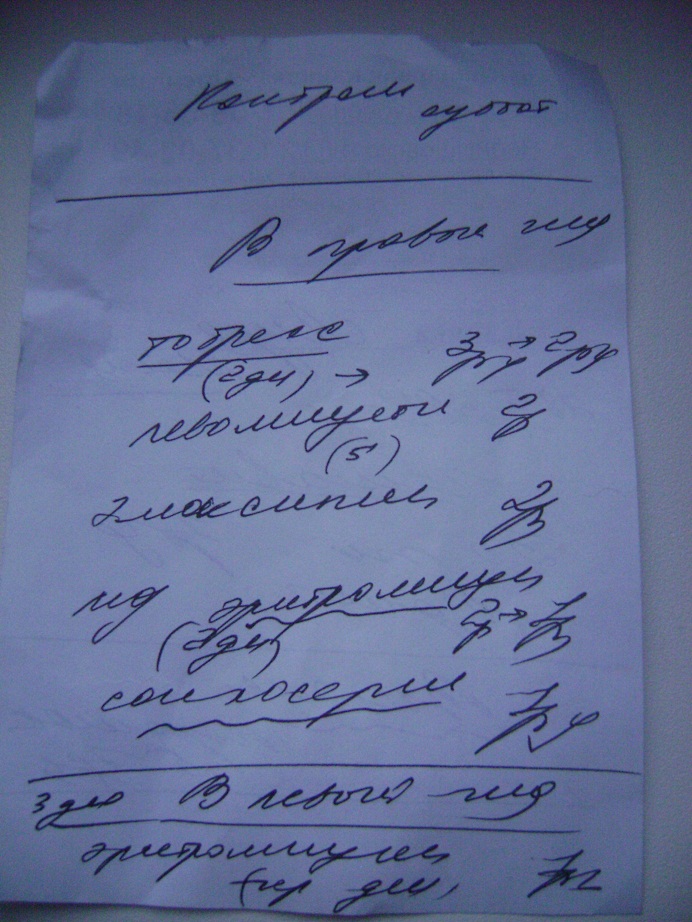 Контроль суббот
В правый глаз
тобрекс 3 р → 2 р
(2дн) →
левомицети 2 р
(5)
эмоксипин 2 р
мд эритромицин
(2дн) 2 р → 1 р
солкосерил 1 р
3 дня В левый глаз
эритромицин
дня, 1 р